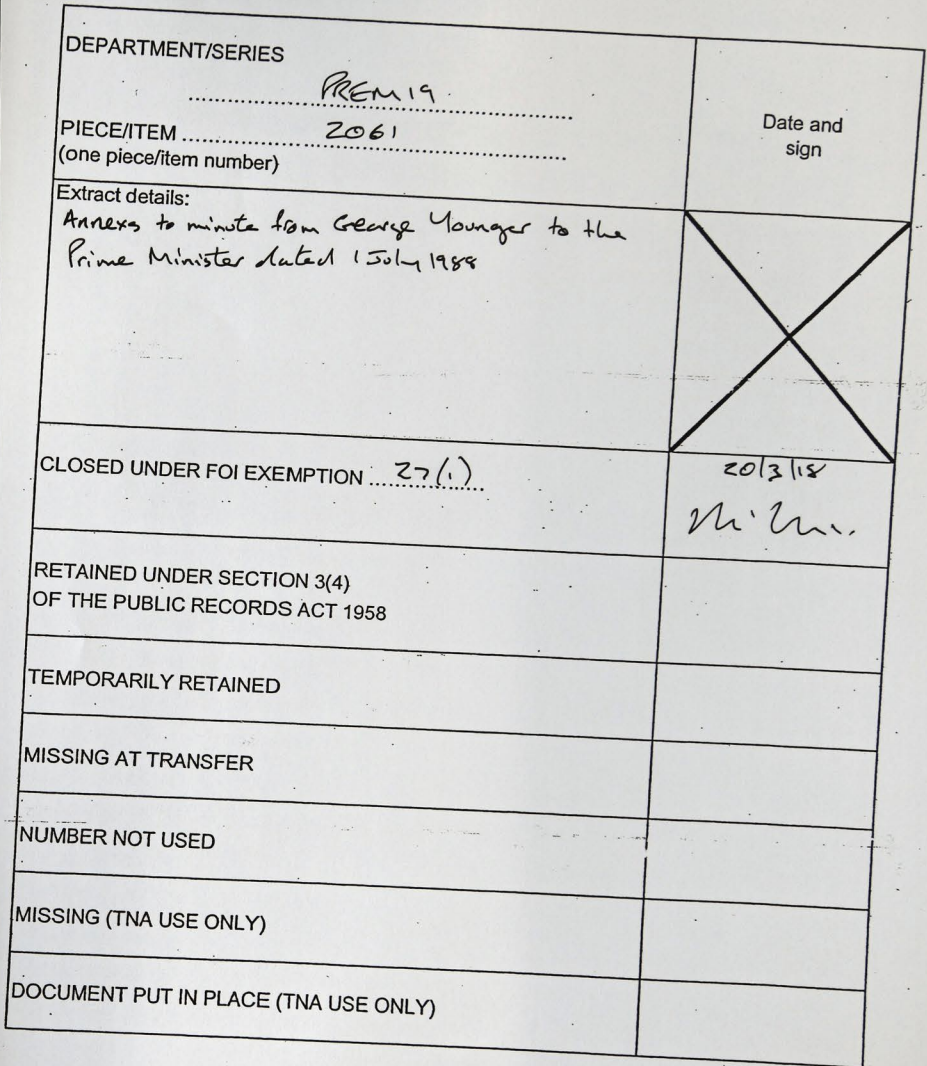 DEPARTMENT/SERIES
PREM 19
Date and
sign
PIECE/ITEM 2061
(one piece/item number)
Extract details:
Annexs to minute from George Younger to the
Prime Minister dated 1 July 1988
CLOSED UNDER FOI EXEMPTION 27(1)
20/3/18
RETAINED UNDER SECTION 3(4)
OF THE PUBLIC RECORDS ACT 1958
TEMPORARILY RETAINED
MISSING AT TRANSFER
NUMBER NOT USED
MISSING (TNA USE ONLY)
DOCUMENT PUT IN PLACE (TNA USE ONLY)